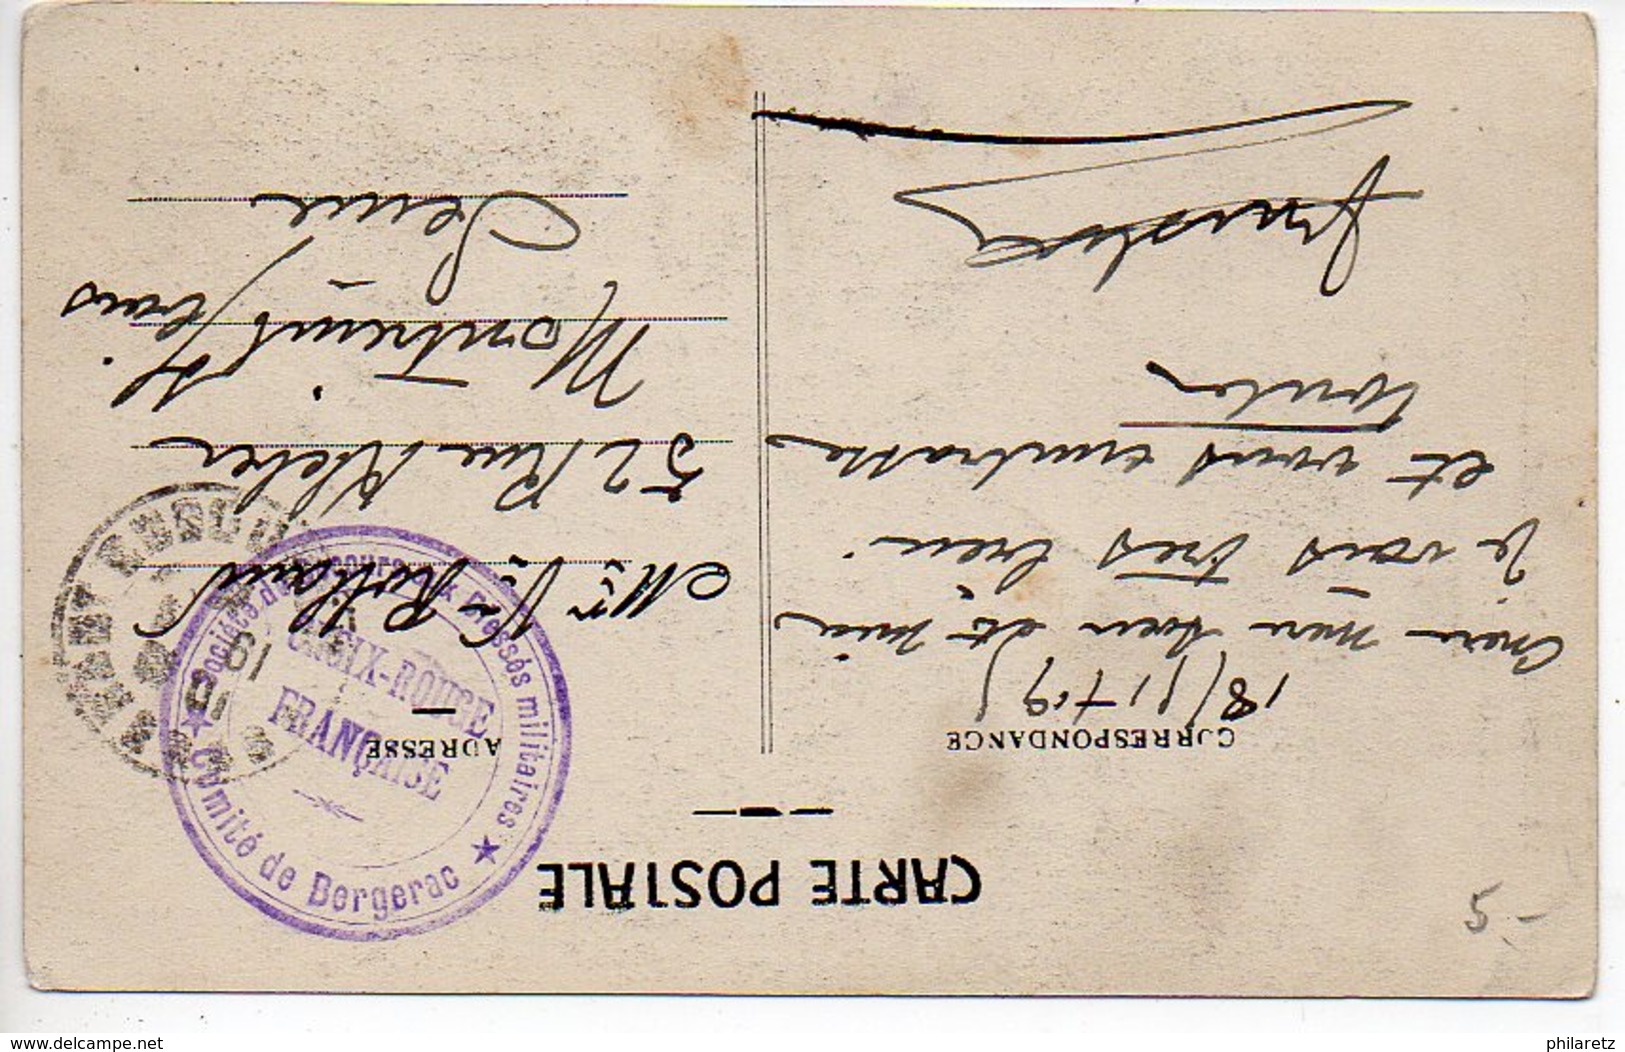 CARTE POSTALE
CORRESPONDANCE
18/11-19
et mia
Je vais très bien
et vous embrasse
toutes
ADRESSE
Mme Vve Rolland
52 Rue Kleber
Montreuil s/ bois
Seine
Société de Secours aux Blessés militaires
CROIX-ROUGE
FRANÇAISE
Comité de Bergerac
19
5-
delcampe.net
philaretz